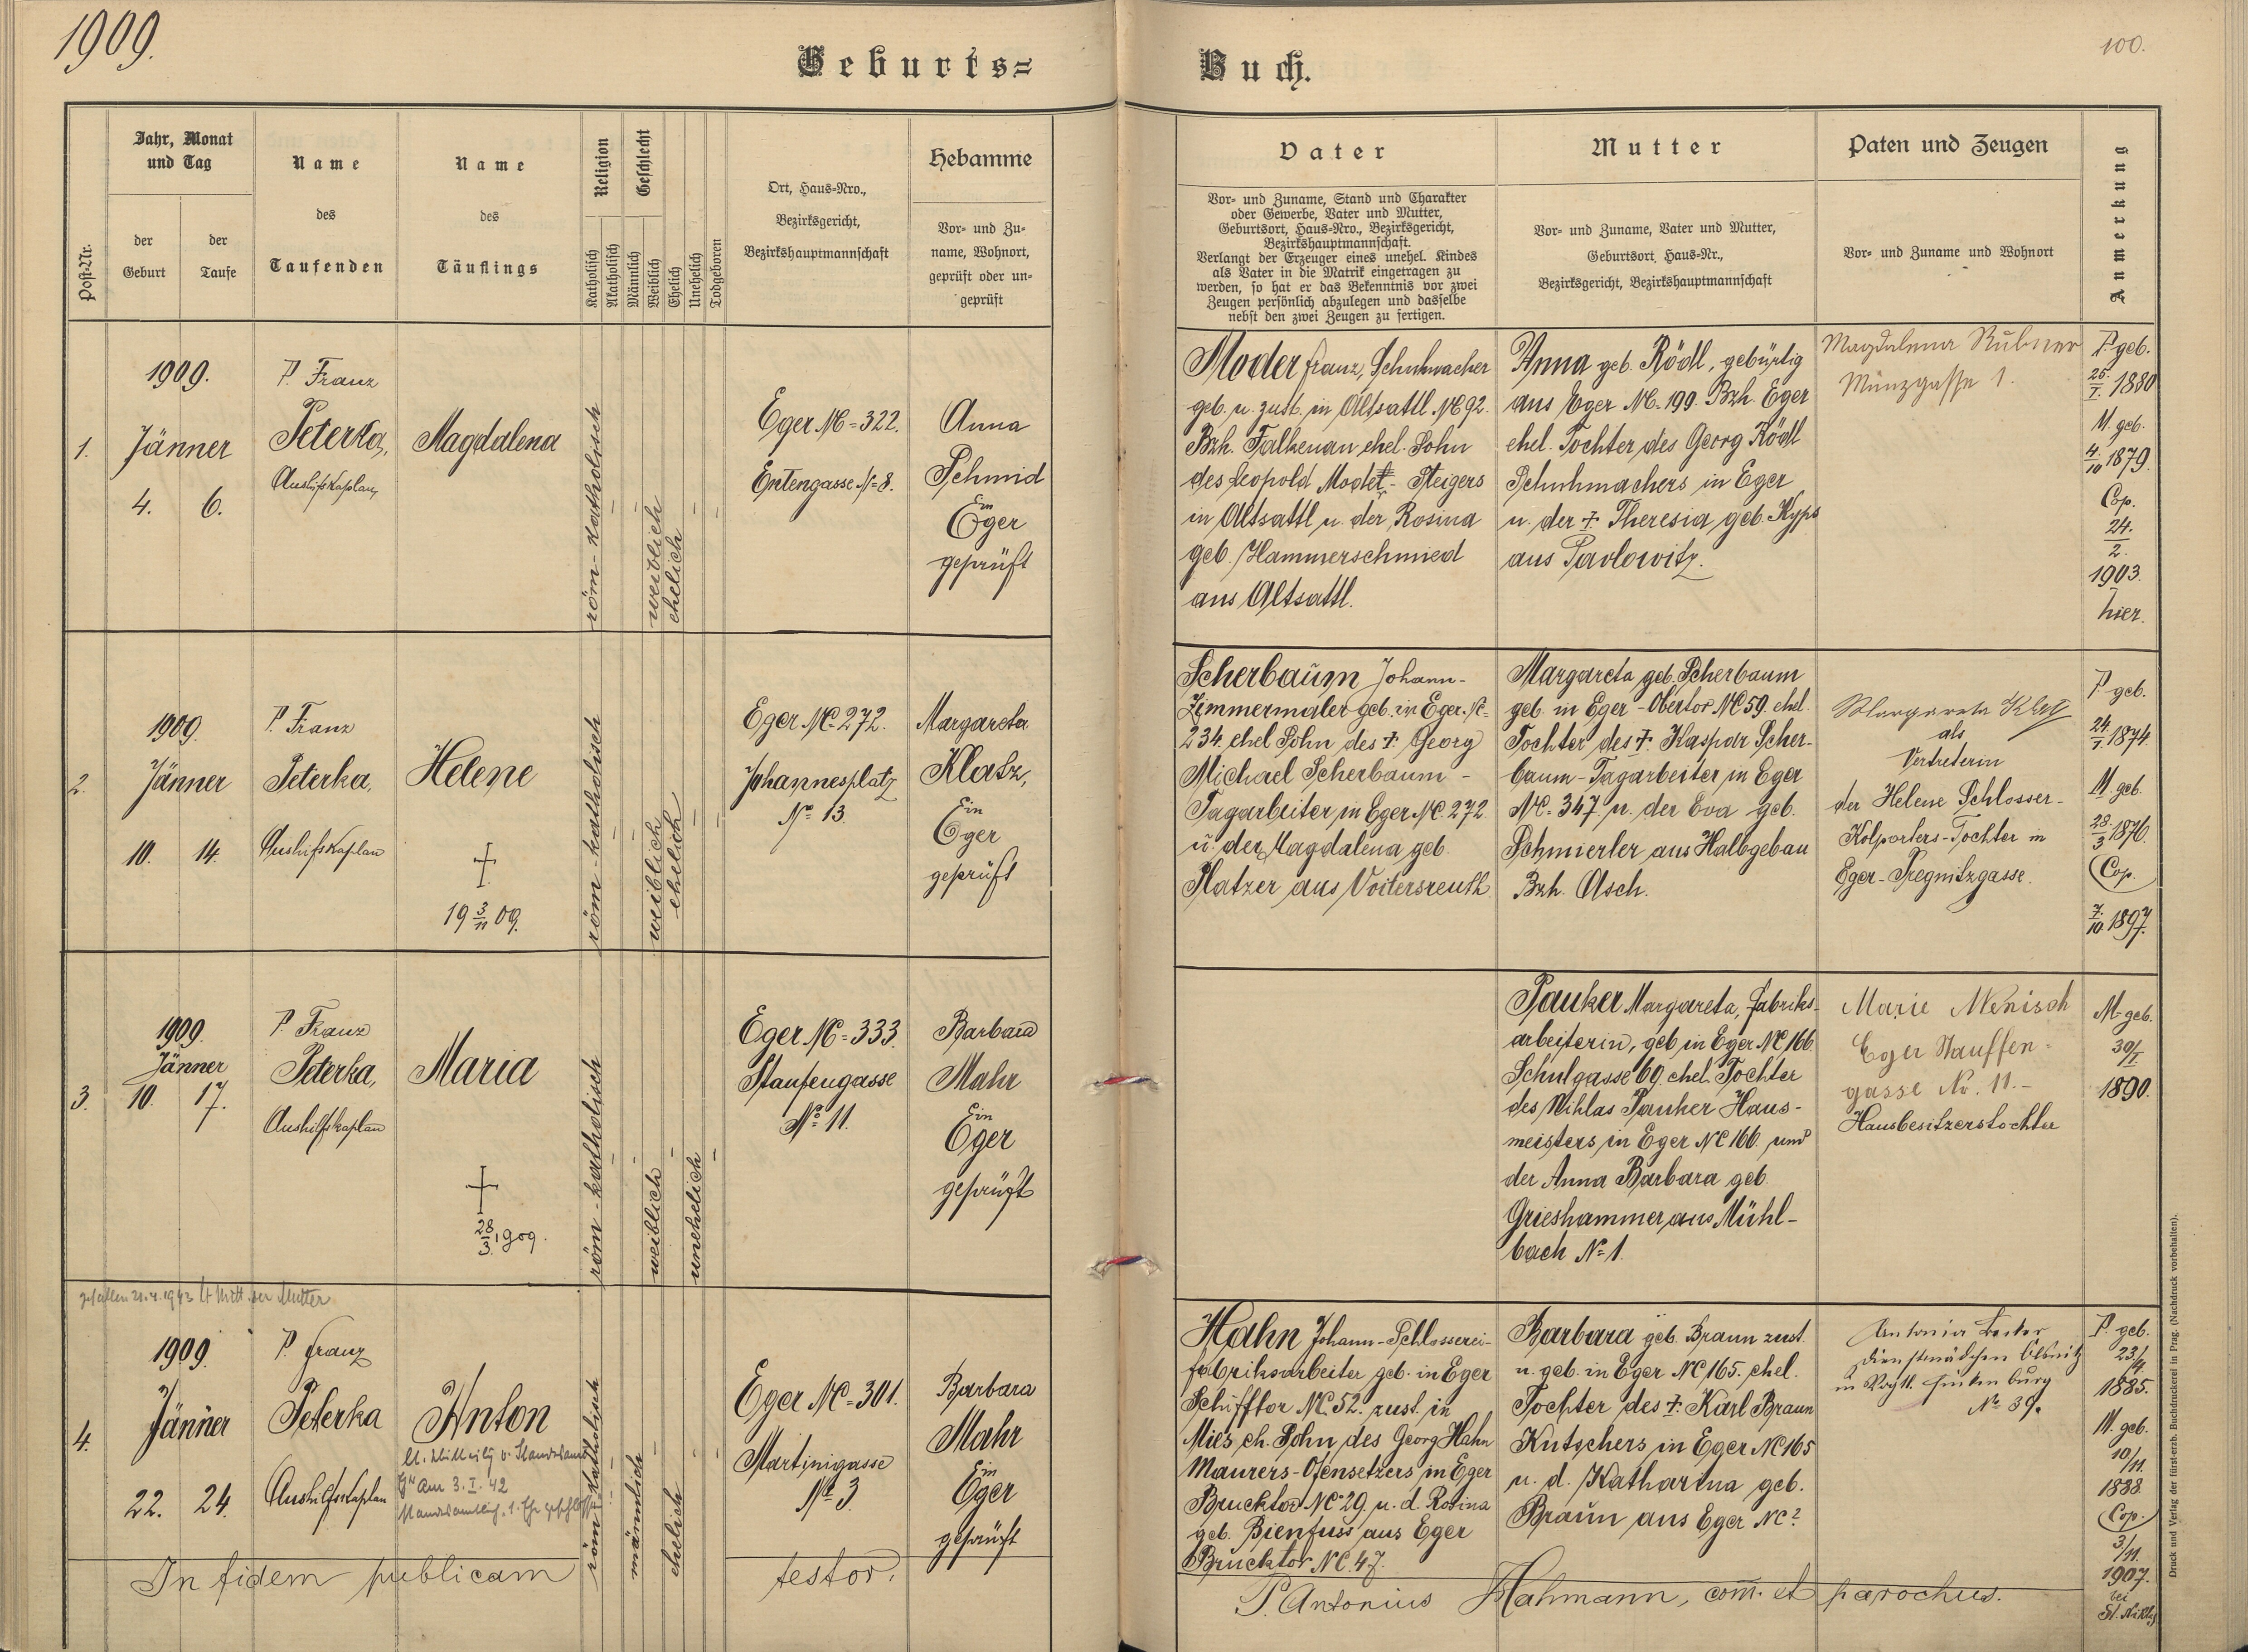 1909.
100.
Geburts=
Buch.
Post-Nr.
Jahr, Monat
und Tag
der
Geburt
der
Taufe
Name
des
Taufenden
Name
des
Täuflings
Religion
Katholisch
Akatholisch
Geschlecht
Männlich
Weiblich
Ehelich
Unehelich
Todgeboren
Ort, Haus-Nro.,
Bezirksgericht,
Bezirkshauptmannschaft
Hebamme
Vor- und Zu-
name, Wohnort,
geprüft oder un-
geprüft
Vater
Vor- und Zuname, Stand und Charakter
oder Gewerbe, Vater und Mutter,
Geburtsort, Haus-Nro., Bezirksgericht,
Bezirkshauptmannschaft.
Verlangt der Erzeuger eines unehel. Kindes
als Vater in die Matrik eingetragen zu
werden, so hat er das Bekenntnis vor zwei
Zeugen persönlich abzulegen und dasselbe
nebst den zwei Zeugen zu fertigen.
Mutter
Vor- und Zuname, Vater und Mutter,
Geburtsort, Haus-Nr.,
Bezirksgericht, Bezirkshauptmannschaft
Paten und Zeugen
Vor- und Zuname und Wohnort
Anmerkung
1.
1909.
Jänner
4. 6.
P. Franz
Peterka,
Aushilfskaplan
Magdalena
röm-katholisch
weiblich
ehelich
Eger NC=322.
Entengasse N=8.
Anna
Schmid
in
Eger
geprüft
Moder Franz, Schuhmacher
geb. u. zust. in Altsattl NC 92.
Bzh. Falkenau ehel. Sohn
des Leopold Moder - Steigers
in Altsattl u. der Rosina
geb. Hammerschmied
aus Altsattl.
Anna geb. Rödl, gebürtig
aus Eger NC-199. Bzh. Eger
ehel. Tochter des Georg Rödl
Schuhmachers in Eger
u. der †. Theresia geb. Kyps
aus Pavlowitz.
Magdalena Rubner
Münzgasse 1.
P. geb.
25./I. 1880
M. geb.
4./10 1879.
Cop.
24.
2.
1903.
hier.
2.
1909.
Jänner
10. 14.
P. Franz
Peterka,
Aushilfskaplan
Helene
†
19 3/11 09.
röm-katholisch
weiblich
ehelich
Eger NC=272.
Johannesplatz
No 13.
Margareta
Klatz,
in
Eger
geprüft
Scherbaum Johann-
Zimmermaler geb. in Eger. NC-
234. ehel Sohn des †. Georg
Michael Scherbaum -
Tagarbeiter in Eger NC. 272
u. der Magdalena geb.
Platzer aus Voitersreuth
Margareta geb. Scherbaum
geb. in Eger - Obertor NC 59. ehel.
Tochter des †. Kaspar Scher-
baum - Tagarbeiter in Eger
NC. 347. u. der Eva geb.
Schmierler aus Halbgebau
Bzh. Asch.
Margareta
als
Vertreterin
der Helene Schlosser-
Kolporters-Tochter in
Eger-Pregnitzgasse.
P. geb.
24./1. 1874
M. geb.
28./3 1876.
Cop.
7./10. 1897.
3.
1909.
Jänner
10. 17.
P. Franz
Peterka,
Aushilfskaplan
Maria
†
28/3. 1909.
röm-katholisch
weiblich
unehelich
Eger NC=333.
Staufengasse
No 11.
Barbara
Mahr
in
Eger
geprüft
Pauker Margareta, Fabriks-
arbeiterin, geb. in Eger NC 166
Schulgasse 69. ehel. Tochter
des Niklas Pauker Haus-
meisters in Eger NC 166. und
der Anna Barbara geb.
Grieshammer aus Mühl-
bach N=1.
Marie
Eger Stauffen-
gasse Nr. 11.-
Hausbesitzerstochter
M. geb.
30/I
1890.
gefallen 21.4.1943 lt Mitt. der Mutter
4.
1909.
Jänner
22. 24.
P. Franz
Peterka
Aushilfskaplan
Anton
am 3. I. 42
röm-katholisch
männlich
ehelich
Eger NC=301.
Martinigasse
No 3
Barbara
Mahr
in
Eger
geprüft
Hahn Johann-Schlosserei-
fabriksarbeiter geb. in Eger
Schifftor NC. 52. zust. in
Mies eh. Sohn des Georg Hahn
Maurers-Ofensetzers in Eger
Brucktor NC 29. u. d. Rosina
geb. Bienfuss aus Eger
Brucktor NC. 47.
Barbara geb. Braun zust.
u. geb. in Eger NC 165. ehel.
Tochter des †. Karl Braun
Kutschers in Eger NC 165
u. d. Katharina geb.
Braun aus Eger NC?
Antonia
Dienstmädchen
in Vogtl.
No 39.
P. geb.
23/4.
1885.
M. geb.
10/11
1888.
Cop.
3/11.
1907.
bei
St. Niklas
In fidem publicam testor.
P. Antonius Hahmann, com. et parochus.
Druck und Verlag der fürsterzb. Buchdruckerei in Prag. (Nachdruck vorbehalten).